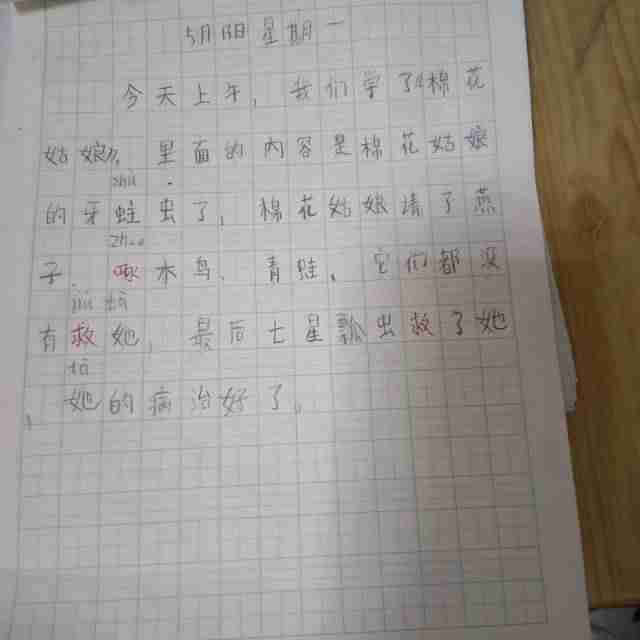 5月10日 星期一
今天上午，我们学了《棉花
姑娘》，里面的内容是棉花姑娘
zhù
的牙蛀虫了，棉花姑娘请了燕
zhuó
子、啄木鸟、青蛙，它们都没
jiù tā
有救她，最后七星瓢虫救了她
tā
，她的病治好了。